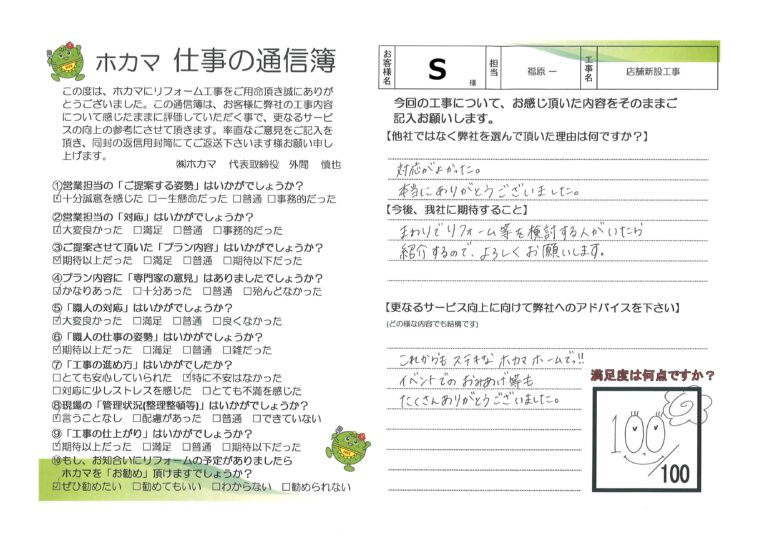 ホカマ 仕事の通信簿
この度は、ホカマにリフォーム工事をご用命頂き誠にありが
とうございました。この通信簿は、お客様に弊社の工事内容
について感じたままに評価していただく事で、更なるサービ
スの向上の参考にさせて頂きます。率直なご意見をご記入を
頂き、同封の返信用封筒にてご返送下さいます様お願い申し
上げます。
㈱ホカマ 代表取締役 外間 慎也
①営業担当の「ご提案する姿勢」はいかがでしょうか？
☑十分誠意を感じた □一生懸命だった □普通 □事務的だった
②営業担当の「対応」はいかがでしょうか？
☑大変良かった □満足 □普通 □事務的だった
③ご提案させて頂いた「プラン内容」はいかがでしょうか？
☑期待以上だった □満足 □普通 □期待以下だった
④プラン内容に「専門家の意見」はありましたでしょうか？
☑かなりあった □十分あった □普通 □殆んどなかった
⑤「職人の対応」はいかがでしょうか？
☑大変良かった □満足 □普通 □良くなかった
⑥「職人の仕事の姿勢」はいかがでしょうか？
☑期待以上だった □満足 □普通 □雑だった
⑦「工事の進め方」はいかがでしたか？
□とても安心していられた ☑特に不安はなかった
□対応に少しストレスを感じた □とても不満を感じた
⑧現場の「管理状況(整理整頓等)」はいかがでしょうか？
☑言うことなし □配慮があった □普通 □できていない
⑨「工事の仕上がり」はいかがでしょうか？
☑期待以上だった □満足 □普通 □期待以下だった
⑩もし、お知合いにリフォームの予定がありましたら
ホカマを「お勧め」頂けますでしょうか？
☑ぜひ勧めたい □勧めてもいい □わからない □勧められない
お客様名 S 様 担当 福原 一 工事名 店舗新設工事
今回の工事について、お感じ頂いた内容をそのままご
記入お願いします。
【他社ではなく弊社を選んで頂いた理由は何ですか？】
対応がよかった。
本当にありがとうございました。
【今後、我社に期待すること】
まわりでリフォーム等を検討する人がいたら
紹介するので、よろしくお願いします。
【更なるサービス向上に向けて弊社へのアドバイスを下さい】
(どの様な内容でも結構です)
これからもステキなホカマホームでっ!!
イベントでのおみあげ等も
たくさんありがとうございました。
満足度は何点ですか？
100
/100